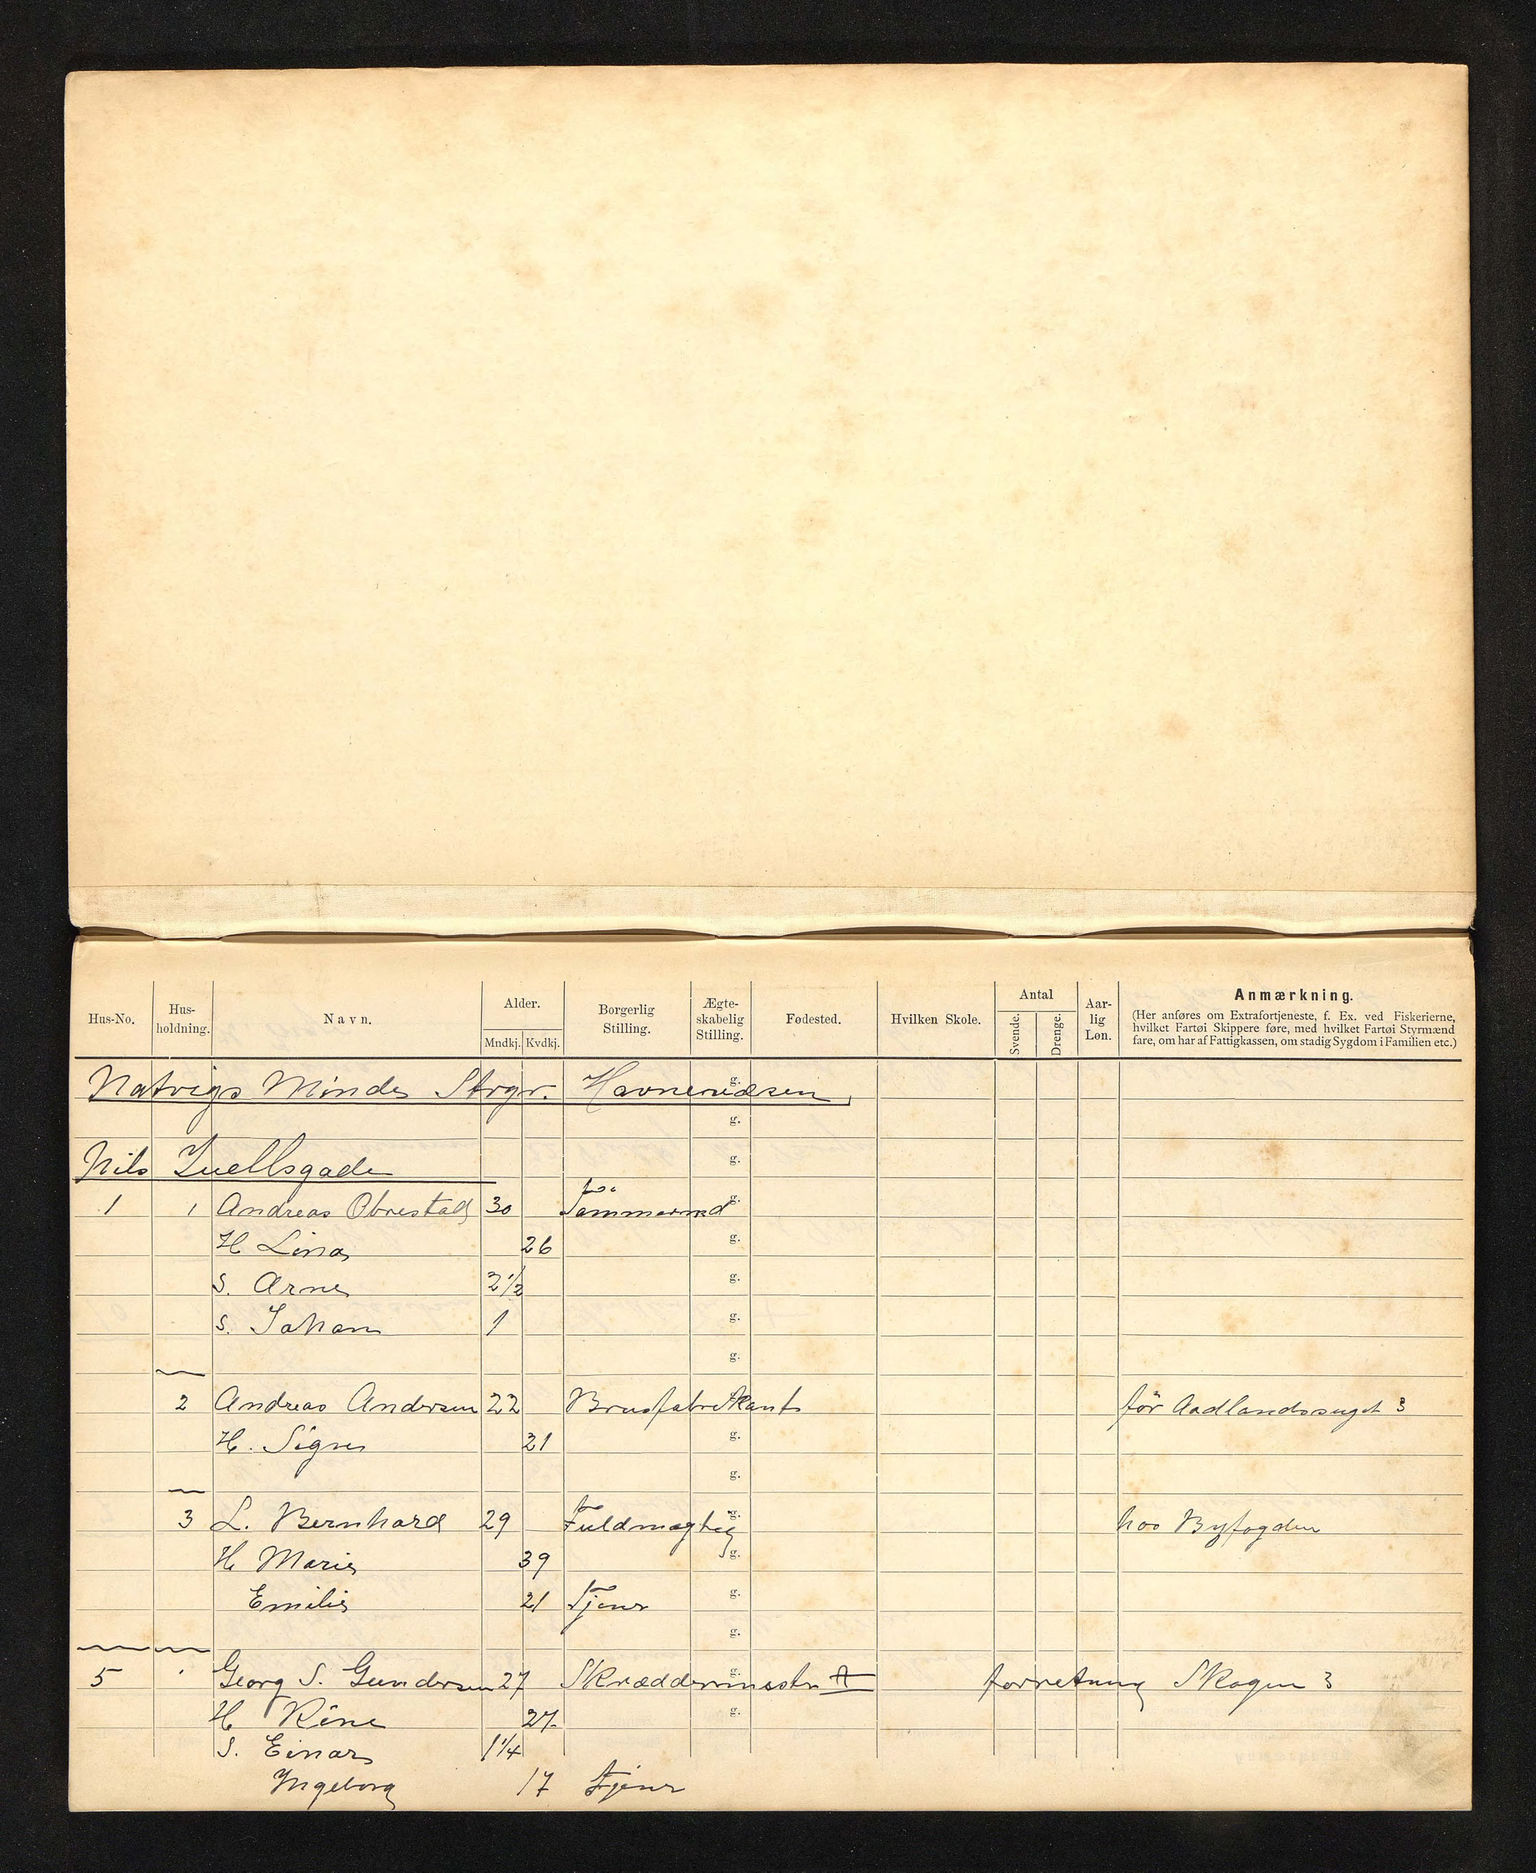 Hus-No. Hus-holdning. Navn. Alder. Mndkj. Kvdkj. Borgerlig Stilling. Ægte-skabelig Stilling. Fødested. Hvilken Skole. Antal Svende. Drenge. Aar-lig Løn. Anmærkning.
(Her anføres om Extrafortjeneste, f. Ex. ved Fiskerierne,
hvilket Fartøi Skippere føre, med hvilket Fartøi Styrmænd
fare, om har af Fattigkassen, om stadig Sygdom i Familien etc.)
Natvigs Minde Strgr. g.
g.
Nils Juellsgade g.
1 1 Andreas Obrestad 30 Tømmermd g.
H Lina 26 g.
S. Arne 2 1/2 g.
S. Johan 1 g.
g.
2 Andreas Andersen 22 Brusfabrikant før Aadlandssuget 3
H. Signe 21 g.
g.
3 L. Bernhard 29 Fuldmægtig g. hos Byfogden
H Marie 39 g.
Emilie 21 Tjener g.
g.
5 Georg S. Gundersen 27 Skræddermester g. forretning Skagen 3
H Rine 27 g.
S. Einar 1 1/4
Ingeborg 17 Tjener